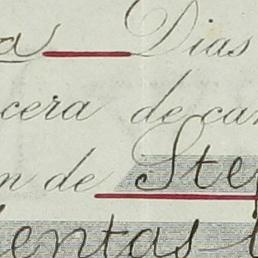 a Dias
cera de cam
n de Ste
ientas